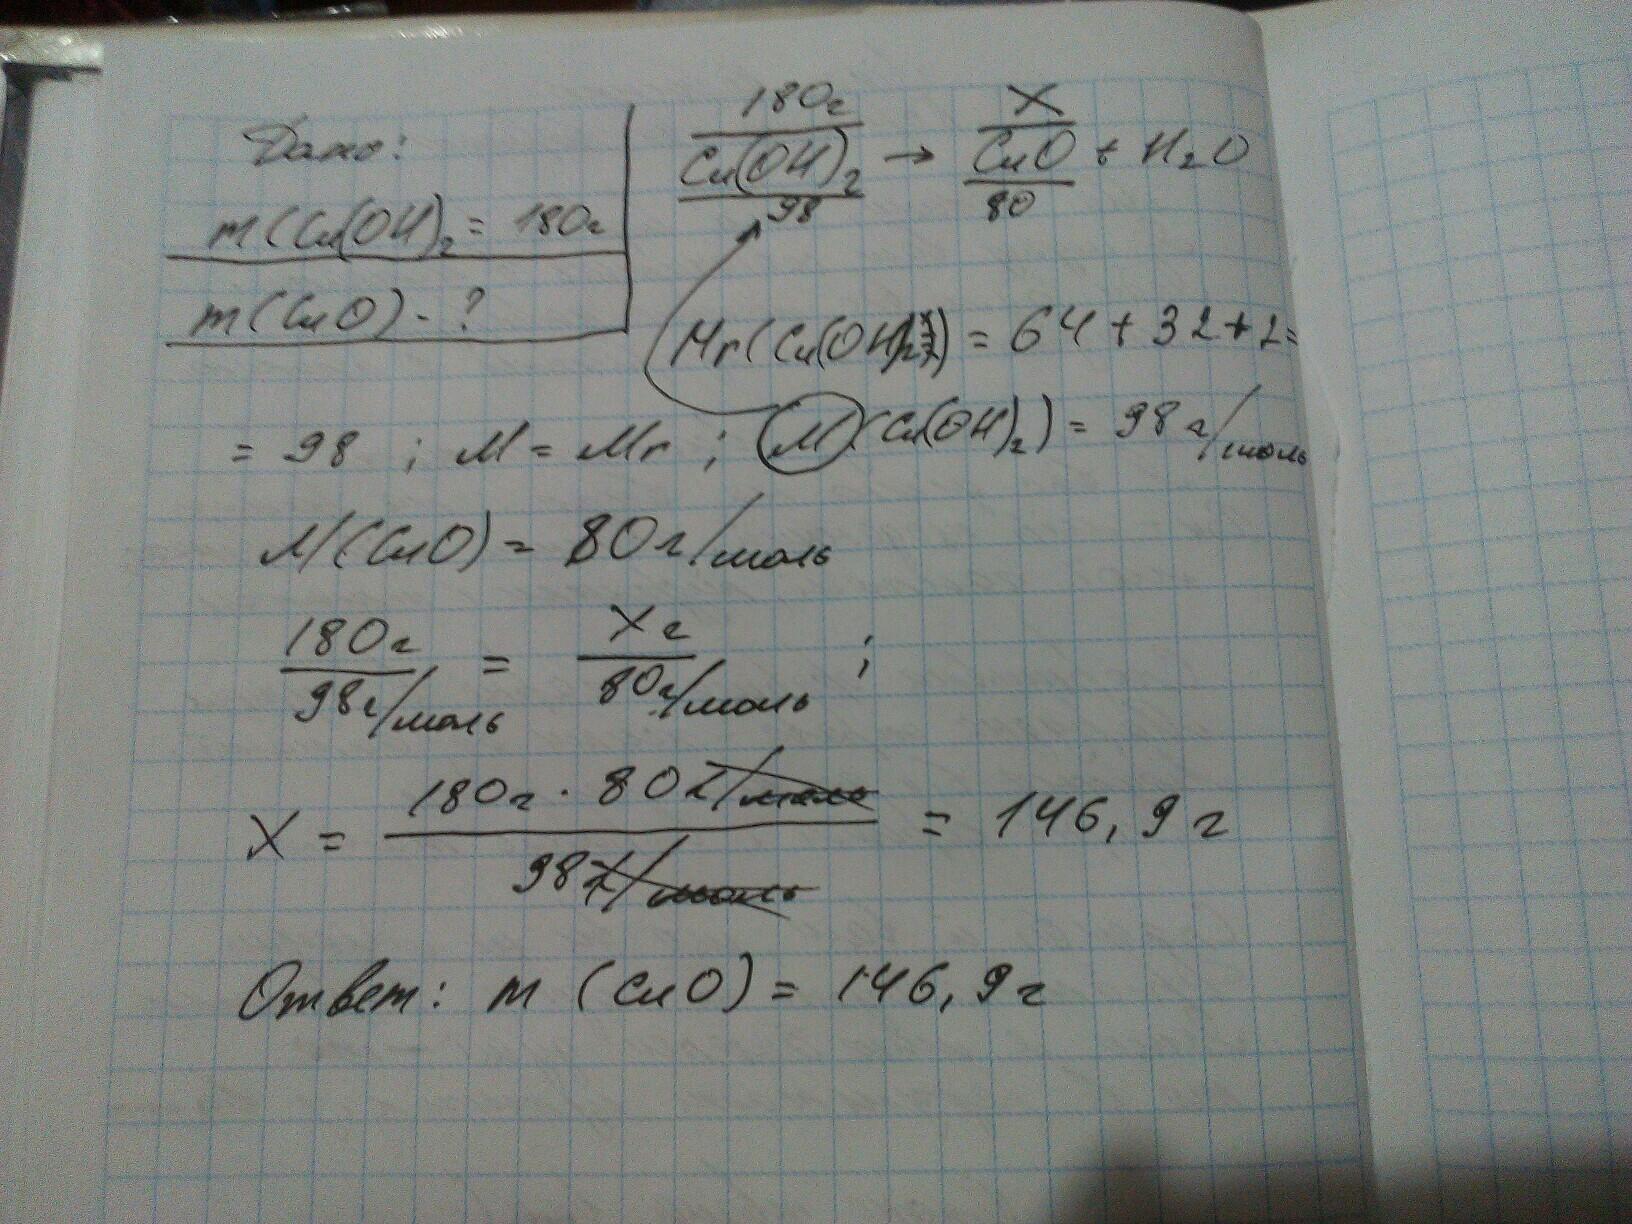 Дано:
m(Cu(OH)₂ = 180г
m(CuO) - ?
180г X
Cu(OH)₂ → CuO + H₂O
98 80
Mr(Cu(OH)₂) = 64 + 32 + 2 =
= 98 ; M = Mr ; M(Cu(OH)₂) = 98 г/моль
M(CuO) = 80 г/моль
180г/98г/моль = Xг/80г/моль ;
X = 180г · 80г/моль / 98г/моль = 146,9 г
Ответ: m (CuO) = 146,9 г